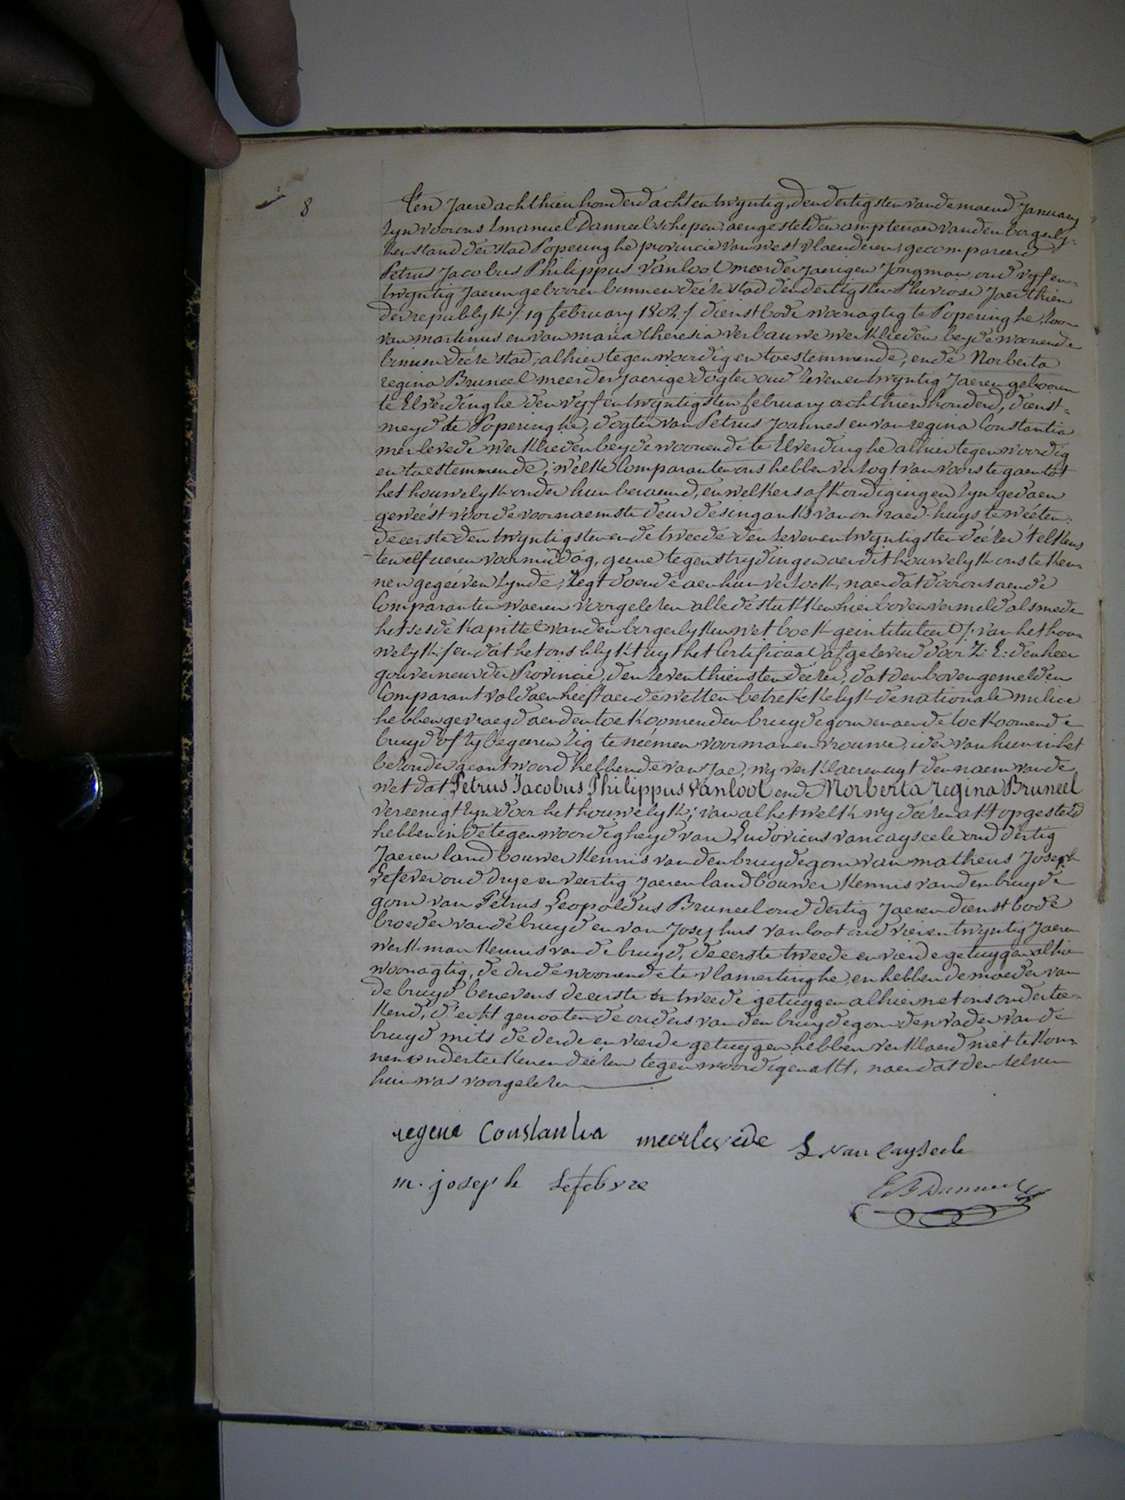 8
Ten Jaere achthien honderd acht en twyntig, den dertigsten van de maend January
zyn voor ons Emanuel Danneel schepen aengestelden amptenaer van den borgerly-
ken stand der stad Poperinghe provincie van west vlaenderen, gecompareerd
Petrus Jacobus Philippus Vanloot meerderjaerigen Jongman, oud vyf en
twyntig Jaeren geboren binnen deéze stad den dertigsten Pluviose Jaer thien
der republyk / 19 february 1802 / dienstbode woonagtig te Poperinghe, zoon
van martinus en van maria theresia verbauwe werklieden beyde woonende
binnen deéze stad, alhier tegenwoordig en toestemmende, ende Norberta
regina Bruneel meerderjaerige dogter oud zeven en twyntig Jaeren geboren
te Elverdinghe den vyf en twyntigsten february achthien honderd, dienst-
meyd te Poperinghe, dogter van Petrus Joannes en van regina Constantia
merlevede werklieden beyde woonende te Elverdinghe alhier tegenwoordig
en toestemmende; welke Comparanten ons hebben verzogt van voors te gaen tot
het houwelyk onder hun beraemd, en welkers afkondigingen zyn gedaen
geweést voor de voornaemste deur des ingank van ons raed-huys te wéeten:
de eerste den twyntigsten en de tweede den zeven en twyntigsten deézer telkens
ten elf ueren voormiddag, geene tegenstrydingen aen dit houwelyk ons te ken-
nen gegeéven zynde, regt doende aen hun verzoek, naer dat door ons aen de
Comparanten waeren voorgelezen alle de stukken hier boven vermeld alsmede
het sesde kapittel van den borgerlyken wetboek geintituleerd / van het hou-
welyk / en dat het ons blykt uyt het Certificaat afgeleverd door Z: E: den heer
gouverneur der Provincie, den zeventhiensten deézer, dat den bovengemelden
Comparant voldaen heeft aen de wetten betrekkelyk de nationale milicie
hebben gevraegd aen den toekoomenden bruydegom en aen de toekoomende
bruyd of zy begeeren zig te neémen voor man en vrouwe, ider van hun in het
bezonder geantwoord hebbende van Jae, wy verklaeren uyt den naem van de
wet dat Petrus Jacobus Philippus Vanloot ende Norberta regina Bruneel
vereenigt zyn door het houwelyk; van al het welk wy deézen akt opgesteld
hebben in de tegenwoordigheyd van Ludovicus vancayseele oud dertig
Jaeren landbouwer kennis van den bruydegom van matheus Joseph
Lefever oud drye en veertig Jaeren landbouwer kennis van den bruyde-
gom van Petrus Leopoldus Bruneel oud dertig Jaeren dienstbode
broeder van de bruyd en van Josephus vanloot oud vier en twyntig Jaeren
werkman kennis van de bruyd, de eerste tweede en vierde getuygen alhier
woonagtig, de derde woonende te vlamertinghe, en hebben de moeder van
de bruyd benevens de eerste en tweede getuygen alhier net ons onderteé-
kend, d'echtgenooten de ouders van den bruydegom den vader van de
bruyd mits de derde en vierde getuygen hebben verklaerd niet te kon-
nen onderteékenen deézen tegenwoordigen akt, naer dat den zelven
hun was voorgelezen
regena Constantia meerleséde L. vancayseele
m. joseph Lefebvre E. Danneel